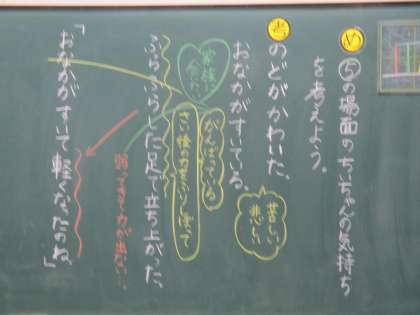 め
⑤の場面のちいちゃんの気持ち
を考えよう。
考
のどがかわいた、
おなかがすいている、
苦しい
悲しい
家族に
会いたい
がんばっている
さい後の力をふりしぼって
ふらふらした足で立ち上がった、
弱ってる 力が出ない…
「おなかがすいて軽くなったのね。」